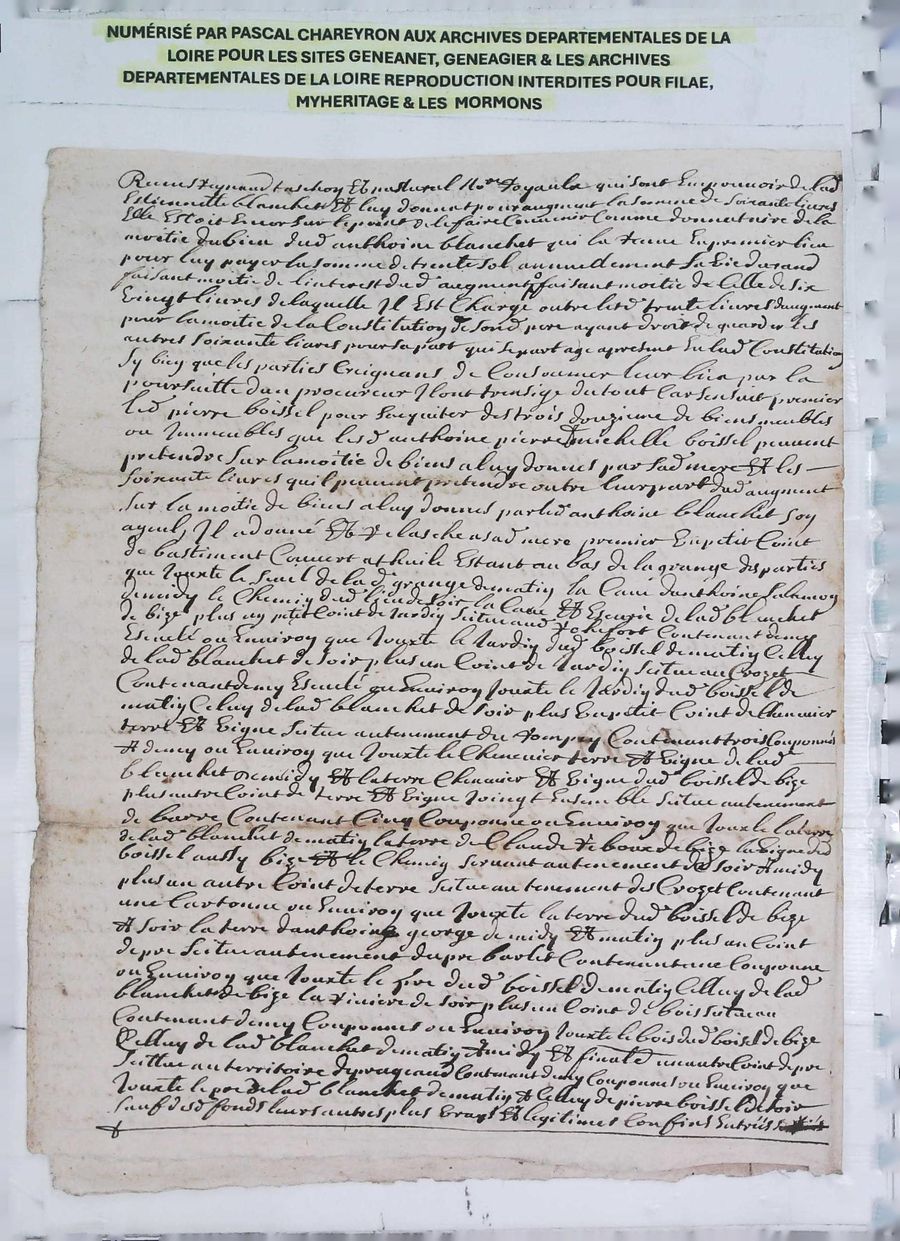 NUMÉRISÉ PAR PASCAL CHAREYRON AUX ARCHIVES DEPARTEMENTALES DE LA
LOIRE POUR LES SITES GENEANET, GENEAGIER & LES ARCHIVES
DEPARTEMENTALES DE LA LOIRE REPRODUCTION INTERDITES POUR FILAE,
MYHERITAGE & LES MORMONS
qui sont en pouvoir de lad
Estiennette blanchet Et luy donnat pour augment la somme de soixante livres
Elle Estoit Encor sur le point de le faire Convenir Comme donnataire de la
moitie du bien dud anthoine blanchet qui la
pour luy payer la somme de trente sol annuellement sa vie durand
faisant moitie de linterest dud augment faisant moitie de Celle de six
vingt livres de laquelle Il Est Charge outre led trente livres daugment
pour la moitie de la Constitution de sond pere ayant droit de garder les
autres soixante livres pour sa part qui Separtage apres en lad Constitution
Sy bien que les parties Creignans de Consommer leur bien par la
poursuitte dun procureur Il ont du tout Car en premier
led pierre boissel pour sacquiter des trois douzieme de biens meubles
ou Immeubles que lesd anthoine pierre Et michelle boissel peuvent
pretendre sur la moitie de biens a luy donnes par sad mere Et les
soixante livres quil peuvent pretendre outre leur part dud augment
sur la moitie de biens a luy donnes par led anthoine blanchet son
ayeul, Il a donné Et relasche a sad mere premier un petit Coint
de bastiment Couvert a thuile Estant au bas de la grange des parties
que Jouxte le seuil de la d grange de matin la Cour danthoine
de midy le Chemin dud lieu de soir la Cour Et Escurie de lad blanchet
de bize plus un petit Coint de Jardin scitue aud Contenant demy
Escuelé ou Environ que Jouxte le Jardin dud boissel de matin Celluy
de lad blanchet de soir plus un Coint de Jardin scitue au Crozet
Contenant demy Escuelé ou Environ Jouxte le Jardin dud boissel de
matin Celuy de lad blanchet de soir plus un petit Coint de Chenevier
terre Et vigne scitue au tenement du Contenant trois Couponnés
Et demy ou Environ que Jouxte le Chenevier terre Et vigne de lad
blanchet de midy Et la terre Chenevier Et vigne dud boissel de bize
plus autre Coint de terre Et vigne Joingt Ensemble scitue au tenement
de barre Contenant Cinq Couponne ou Environ que Jouxte la terre
de lad blanchet de matin la terre de Claude de bize la vigne dud
boissel aussy bize Et le Chemin servant au tenement de soir Et midy
plus un autre Coint de terre scitue au tenement des Crozet Contenant
une Cartonne ou Environ que Jouxte la terre dud boissel de bize
Et soir la terre danthoine george de midy Et matin plus un Coint
de pre scitue au tenement du pre Contenant une Couponne
ou Environ que Jouxte le pre dud boissel de matin Celluy de lad
blanchet de bize la riviere de soir plus un Coint de bois scitue au
Contenant demy Couponnes ou Environ Jouxte le bois dud boissel de bize
Celluy de lad blanchet de matin Et midy Et finalle un autre Coint de pre
scitue au territoire Contenant demy Couponnes ou Environ que
Jouxte le pre de lad blanchet de matin Et Celluy de pierre boissel de soir
sauf desd fonds leurs autres plus vrays Et legitimes Confins